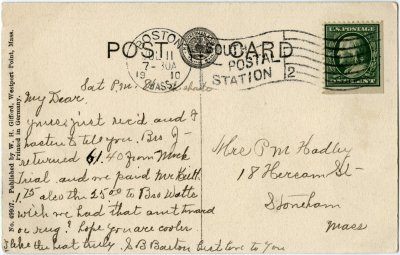 POST CARD
BOSTON
7-30A
1910
MASS.
SOUTH
POSTAL
STATION
2
U.S. POSTAGE
ONE CENT
No. 49917. Published by W. H. Gifford, Westport Point, Mass.
Printed in Germany.
Sat P.M.
My Dear.
yours just rec'd and I
hasten to tell you. Bro J-
returned 61.40 from Mock
Trial and we paid Mr Keith
1.75 also the 25.00 to Bro Watts
wish we had that amt toward
our rug! hope you are cooler
I like the heat truly. S B Barton best love to you
Mrs P M Hadley
18 Hersam St-
Stoneham
Mass